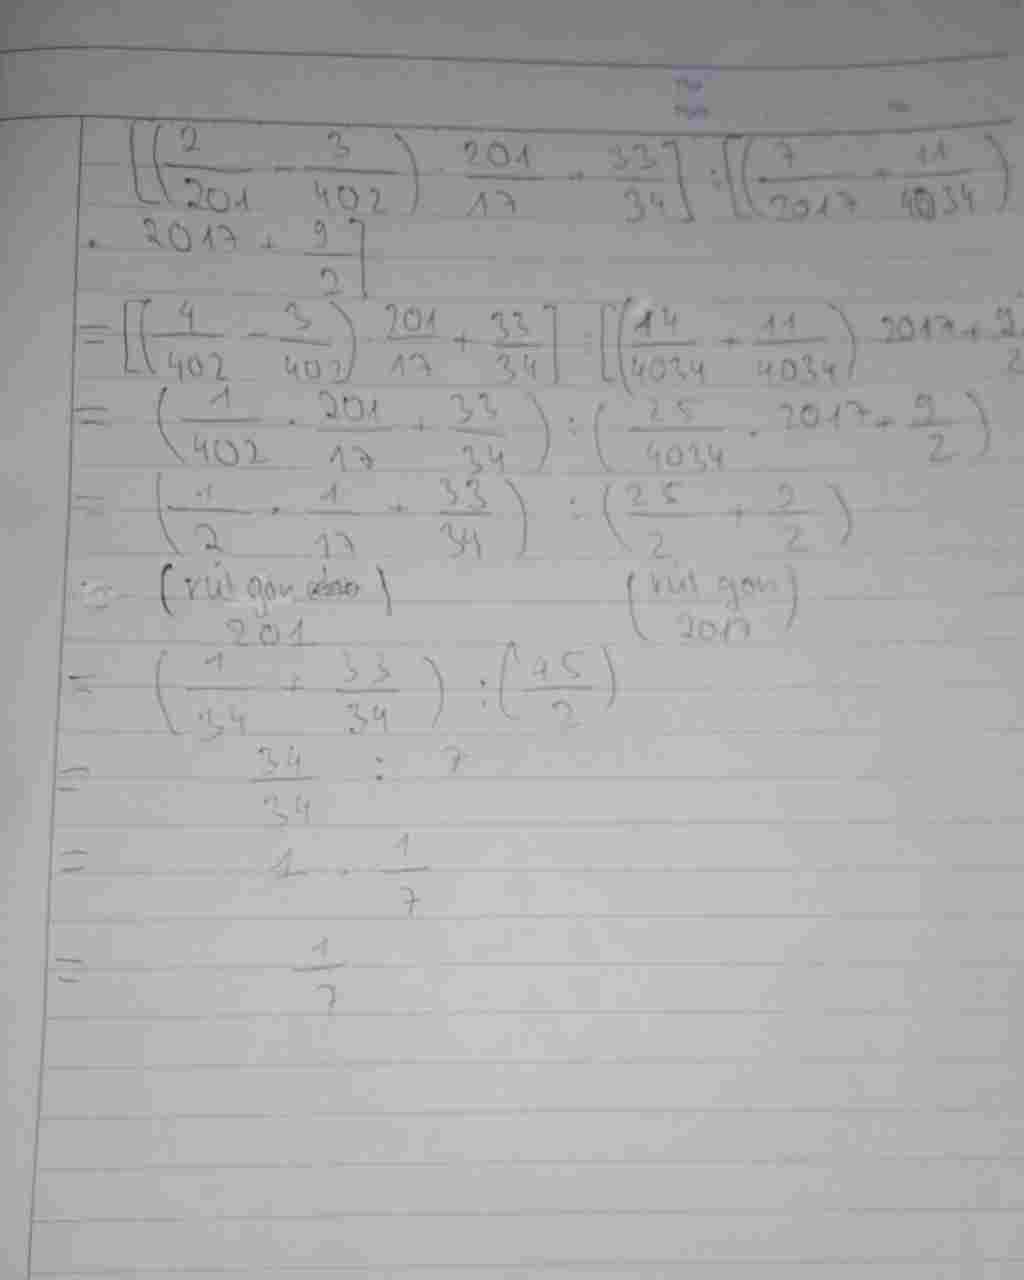 [(2/201 - 3/402) · 201/17 + 33/34] : [(7/2017 + 11/4034)
· 2017 + 9/2]
= [(4/402 - 3/402) · 201/17 + 33/34] : [(14/4034 + 11/4034) 2017 + 9/2
= (1/402 · 201/17 + 33/34) : (25/4034 · 2017 + 9/2)
= (1/2 · 1/17 + 33/34) : (25/2 + 9/2)
= (rút gọn 201) (rút gọn 2017)
= (1/34 + 33/34) : (45/2)
= 34/34 : 7
= 1 · 1/7
= 1/7